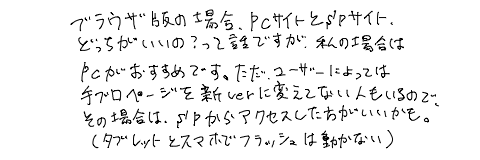 ブラウザ版の場合、PCサイトとSPサイト、
どっちがいいの？って話ですが、私の場合は
PCがおすすめです。ただ、ユーザーによっては
手ブロページを新verに変えてない人もいるので、
その場合は、SPからアクセスした方がいいかも。
(タブレットとスマホでフラッシュは動かない)